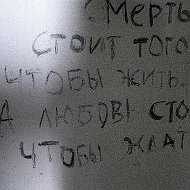 СМЕРТЬ
СТОИТ ТОГО
ЧТОБЫ ЖИТЬ.
А ЛЮБОВЬ СТО
ЧТОБЫ ЖДАТ